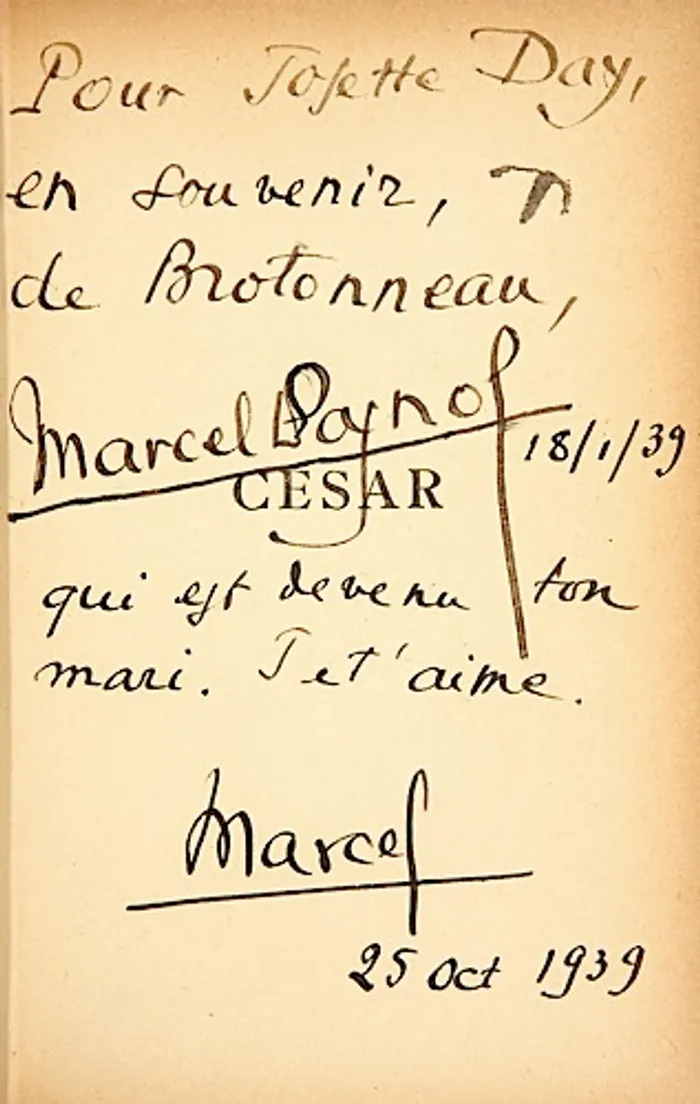 Pour Josette Day,
en souvenir,
de Brotonneau,
Marcel Pagnol
18/1/39
CESAR
qui est devenu ton
mari. Je t'aime.
Marcel
25 Oct 1939